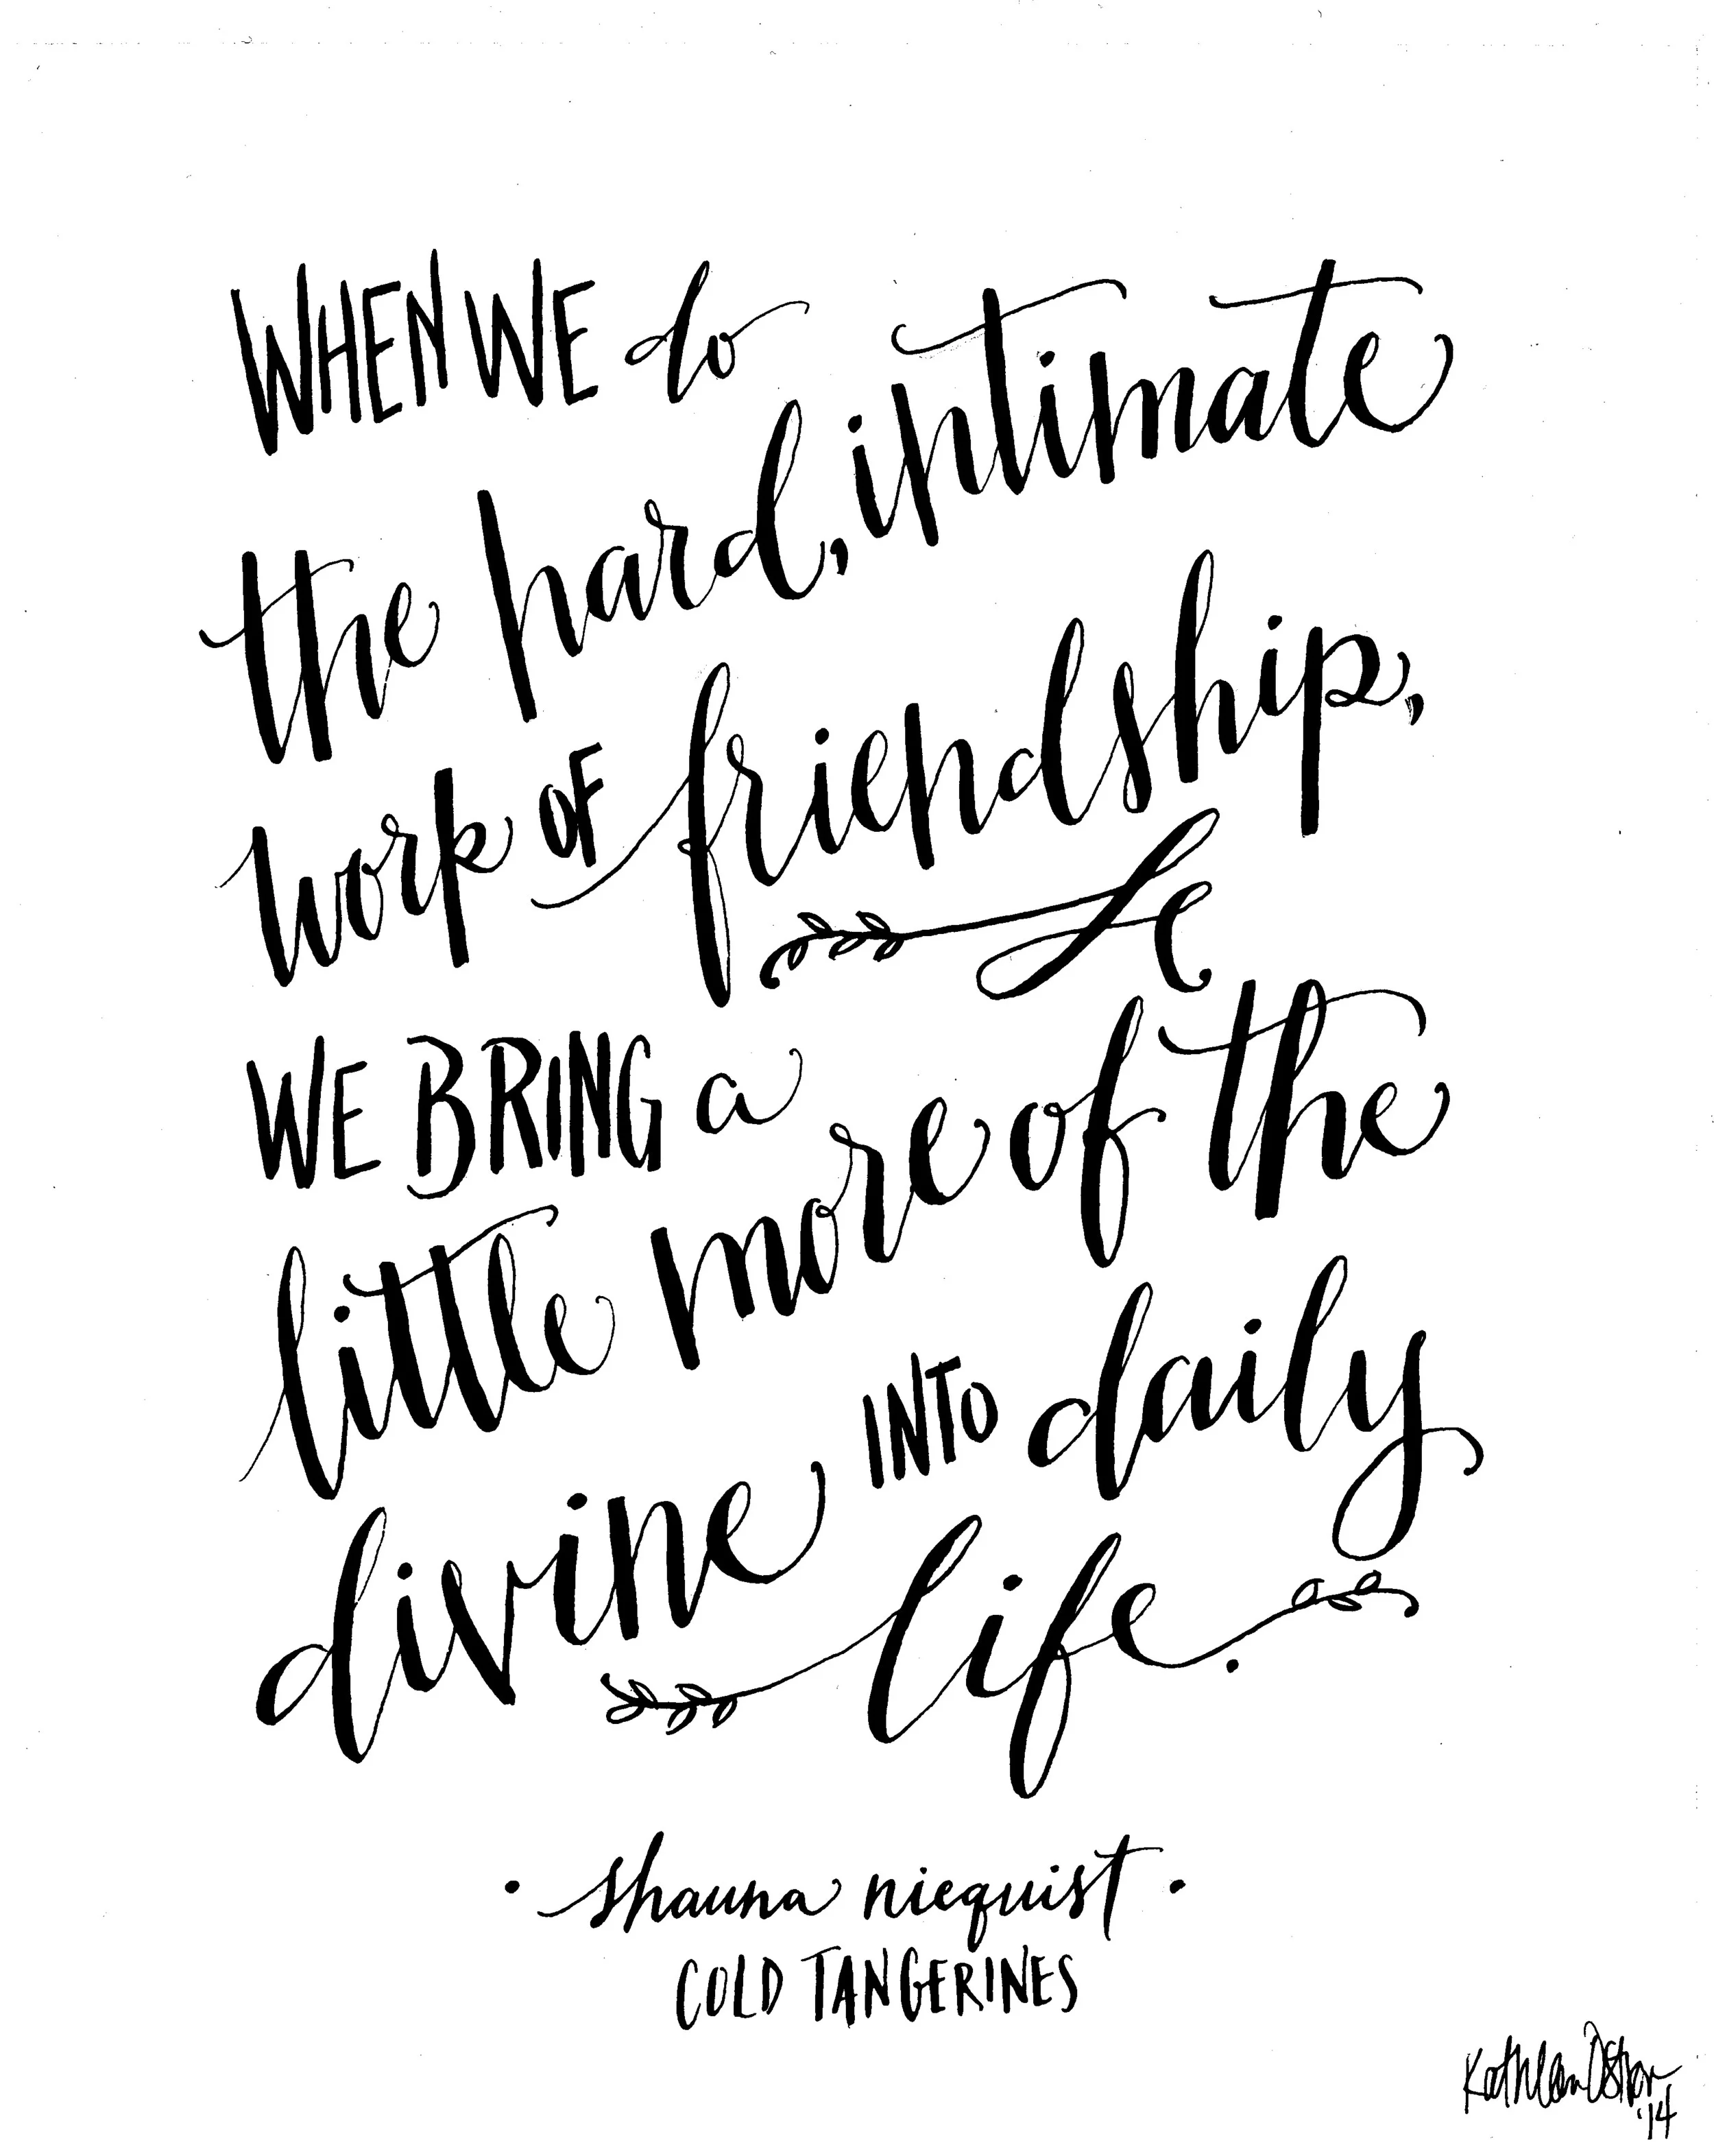 WHEN WE do
the hard, intimate
work OF friendship,
WE BRING a
little more of the
divine INTO daily
life.
· shauna niequist ·
COLD TANGERINES
Kathleen
'14